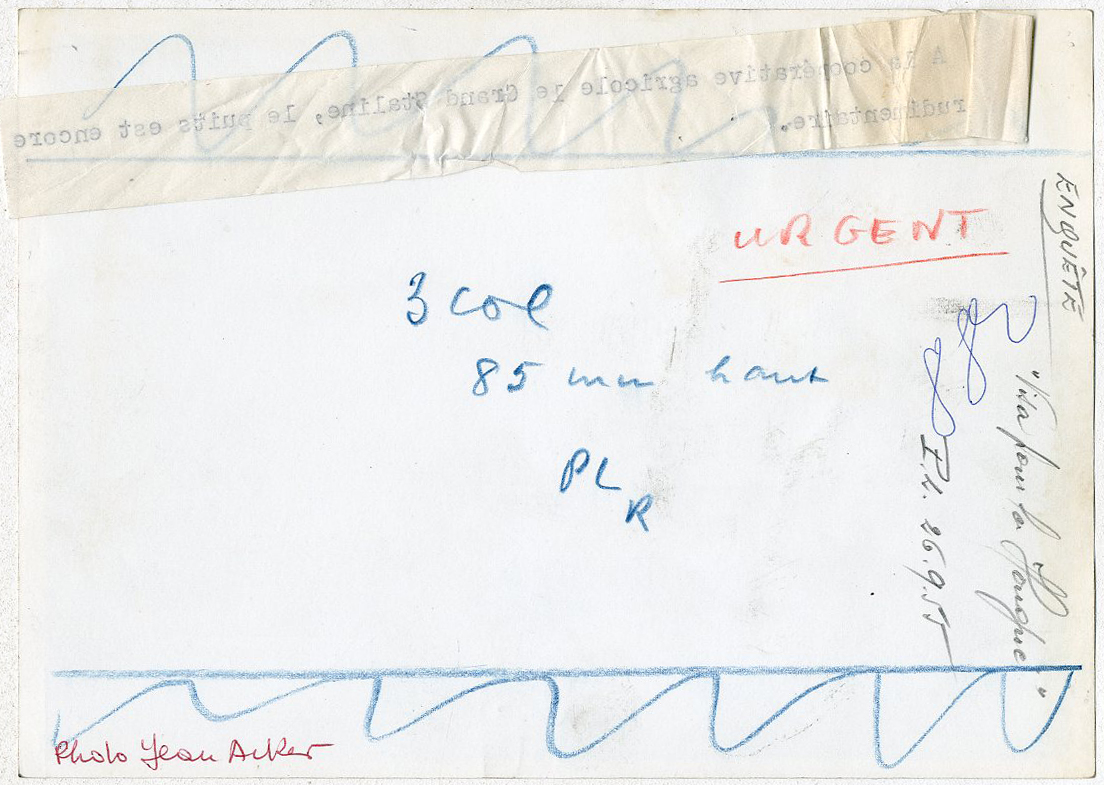 A la coopérative agricole le Grand Staline, le puits est encore
rudimentaire.
URGENT
3 col
85 mm haut
PL
R
ENQUÊTE
"Visa pour la Hongrie"
P.L. 26.9.55
Photo Jean Acker